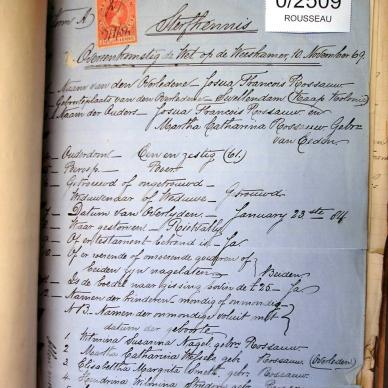 0/2509
ROUSSEAU
Form A
Sterfkennis
Overeenkomstig de Wet op de Weeskamer, 10 November 69
Naam van den Overledene – Josua Francois Rossauw
Geboorteplaats van den Overledene – Swellendam (Kaap Kolonie)
Naam der Ouders – Josua Francois Rossauw en
Martha Catharina Rossauw Gebor
van Eeden
Ouderdom – Een en zestig (61.)
Beroep – Boer
Getrouwd of ongetrouwd –
Weduwenaar of Weduwe – Getrouwd
Datum van Overlyden – January 23ste 84
Waar gestorven –
Of er testament bekend is – Ja
Of er roerende of onroerende goederen of
beiden zyn nagelaten – Beiden
Is de boedel naar gissing boven de £25 – Ja
Namen der kinderen mondig of onmondig
NB. Namen der onmondige voluit met
datum der geboorte
1 Wilmina Susanna Nagel gebr Rossauw
2 Martha Catharina geb. Rossauw (Overleden)
3 Elisabetha Margrita Smith geb. Rossauw
4 Hendrina Wilmina geb. Rossauw